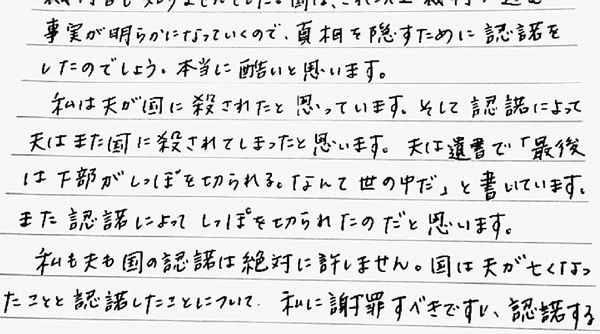 事実が明らかになっていくので、真相を隠すために認諾を
したのでしょう。本当に酷いと思います。
私は夫が国に殺されたと思っています。そして認諾によって
夫はまた国に殺されてしまったと思います。夫は遺書で「最後
は下部がしっぽを切られる。なんて世の中だ」と書いています。
また認諾によってしっぽを切られたのだと思います。
私も夫も国の認諾は絶対に許しません。国は夫が亡くなっ
たことと認諾したことについて、私に謝罪すべきですし、認諾する